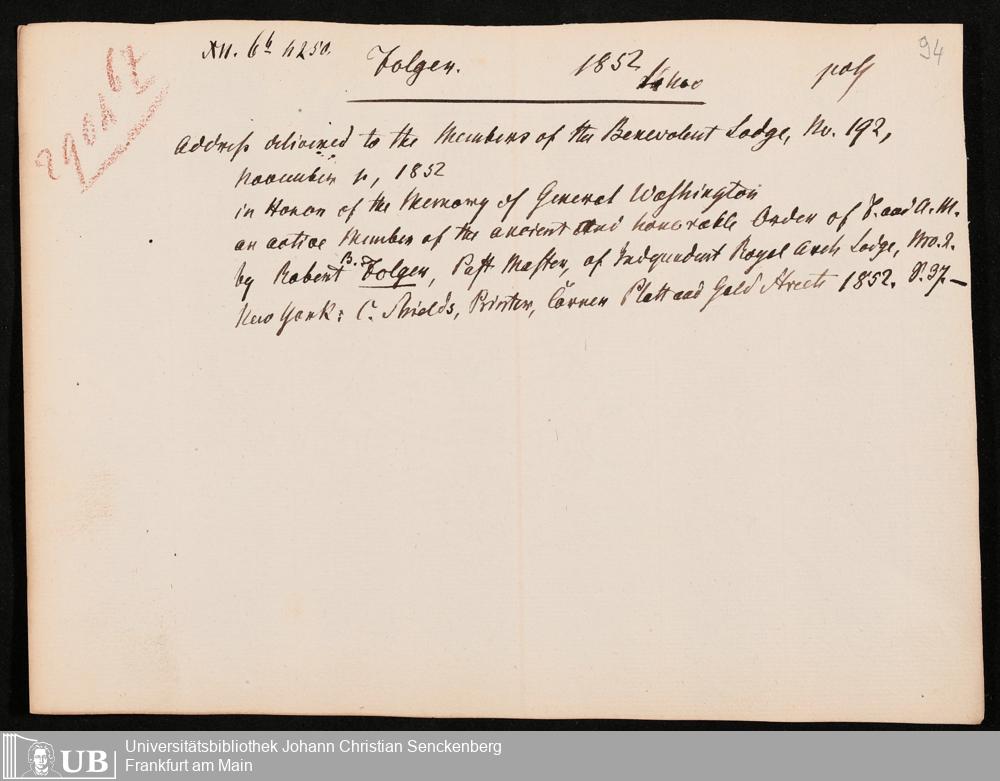 XII. 6b n 250.
Folger. 1852
94
Address delivered to the Members of the Benevolent Lodge, No. 192,
November, 1852
in Honor of the Memory of General Washington
an active Member of the ancient and honorable Order of F. and A. M.
by Robert B. Folger, Past Master, of Independent Royal Arch Lodge, No. 2.
New York: C. Shields, Printer, Corner Platt and Gold Streets 1852. P. 37.—
UB Universitätsbibliothek Johann Christian Senckenberg
Frankfurt am Main